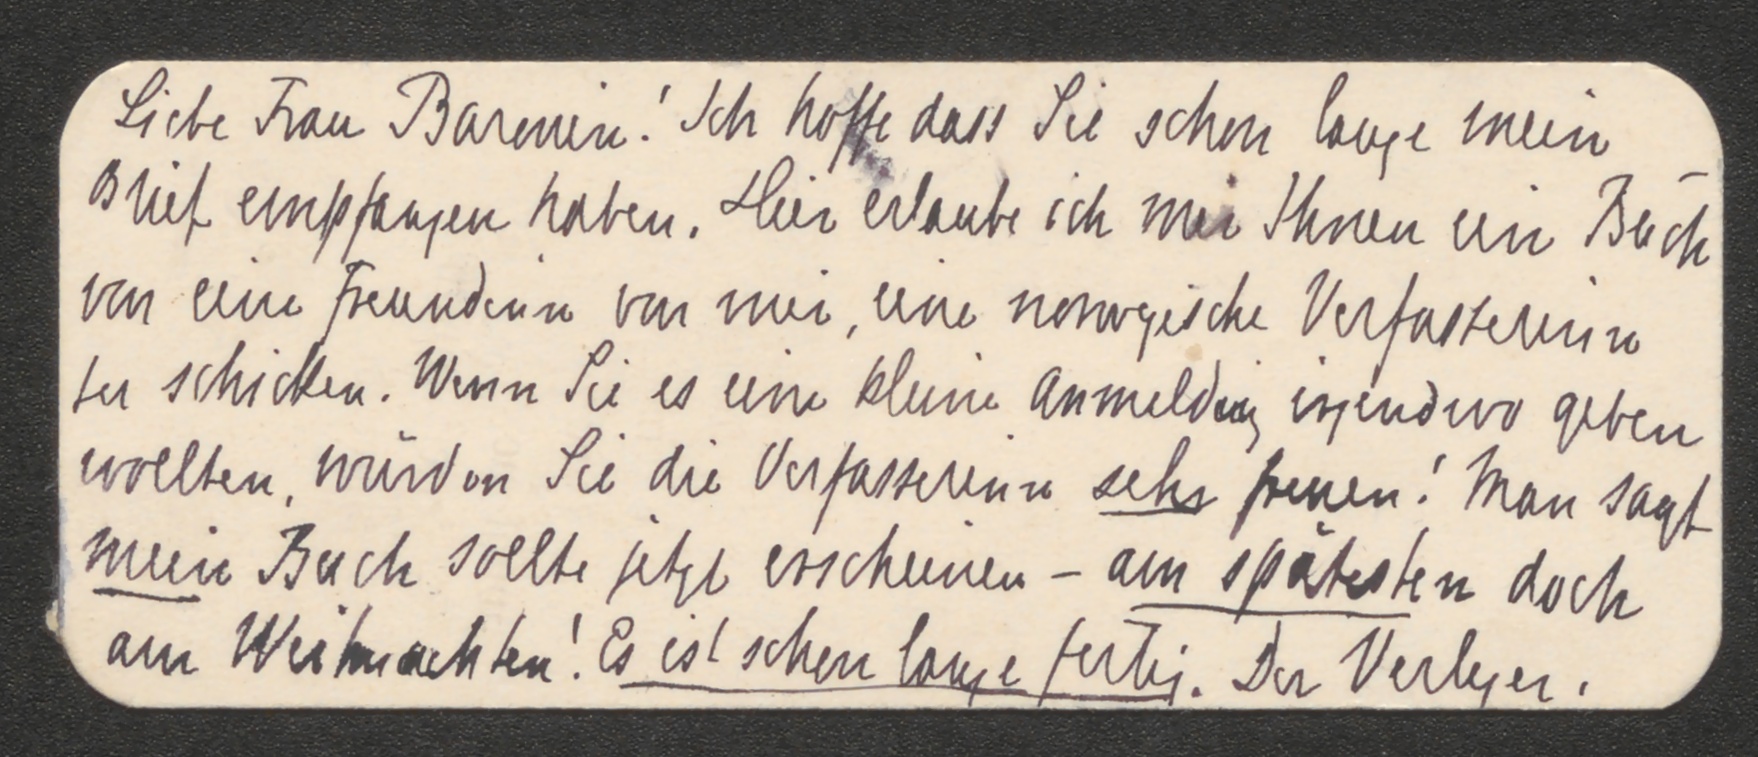 Liebe Frau Baronin! Ich hoffe dass Sie schon lange mein
Brief empfangen haben. Hier erlaube ich mir Ihnen ein Buch
von eine Freundinn von mir, eine norwegische Verfasserinn
zu schicken. Wenn Sie es eine kleine Anmeldung irgendwo geben
wollten, würden Sie die Verfasserinn sehr freuen! Man sagt
mein Buch sollte jetzt erscheinen – am spätesten doch
am Weihnachten! Es ist schon lange fertig. Der Verleger.